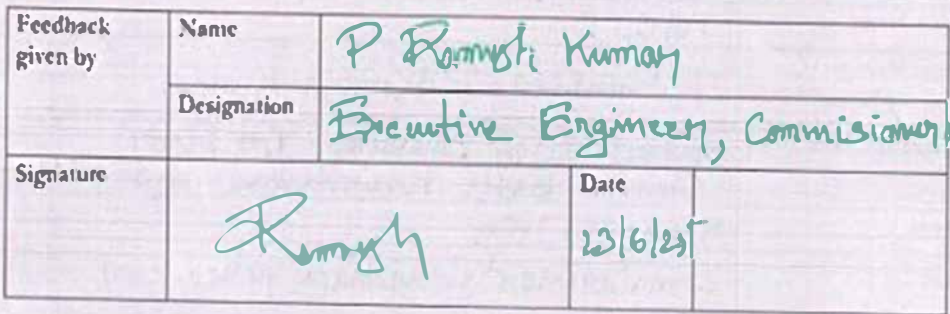 Feedback given by
Name
P Ramesh Kumar
Designation
Executive Engineer, Commisioner
Signature
Ramesh
Date
23/6/25